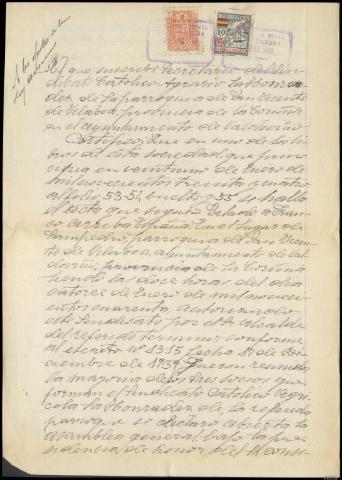 A los efectos de la
Ley
El que suscribe Secretario del Sin
dicato Católico Agrario La Honra
dez de la parroquia de San Vicente
de Vilaboa, provincia de La Coruña
en el ayuntamiento de Valdoviño
Certifico: Que en uno de los li
bros de esta sociedad que prin
cipia en veintiuno de Enero de
mil novecientos treinta y cuatro
al folio 53 54 vuelto y 55 se halla
el acta que sigue: Saludo a Fran
co arriba España. En el lugar de
San Pedro, parroquia de San Vicen
te de Vilaboa, ayuntamiento de Val
doviño, provincia de La Coruña
siendo las doce horas del dia
catorce de Enero de mil novecien
tos cuarenta, autorizado
este Sindicato por el Sr alcalde
del referido termino, conforme
al decreto Nº 1315 fecha de Di
ciembre de 1939. fueron reunidos
la mayoria de los socios que
forman el Sindicato Católico Agri
cola La Honradez de la referida
parroquia se declaro abierta la
asamblea general bajo la pre
sidencia de honor del Sr